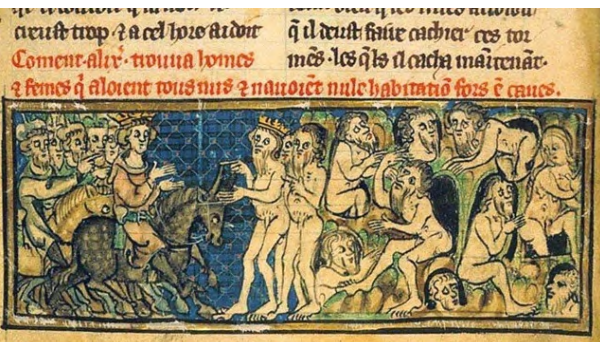 creust trop · ⁊ a cel hore ardoit
Coment · alix · trouua homes
q̃ il deust faire cachier ces tor
mẽs · les q̃ls il cacha maĩtenãt ·
⁊ femes q̃ aloient tous nus ⁊ nauoiẽt nule habitatiõ fors ẽ caues .